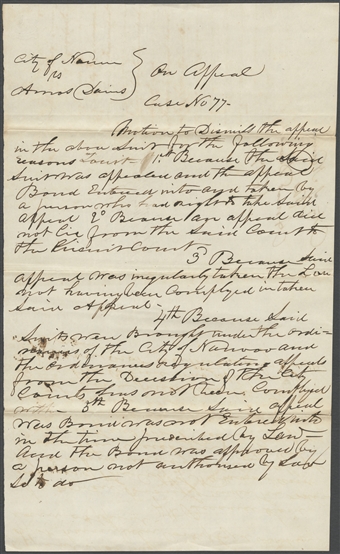 City of Nauvoo
vs
Amos Davis
On Appeal
Case No 77-
Motion to Dismiss the appeal
in the above Suit for the following
reasons To wit 1st Because the said
Suit was appealed and the appeal
Bond Entered into and taken by
a person who had no right to take Said
appeal 2d Because an appeal did
not lie from the Said Court to
the Circuit Court
3d Because Said
appeal was irregularly taken the Law
not having been Complyed in taken
Said Appeal
4th Because Said
Suits were Brought under the ordi-
nances of the City of Nauvoo and
the ordinances regulating appeals
from the Decission of the City
Courts has not been Complyed
with 5th Because Said appeal
was Bond was not Entered into
in the time prescribed by Law-
And the Bond was approved by
a person not authorised by Law
So to do